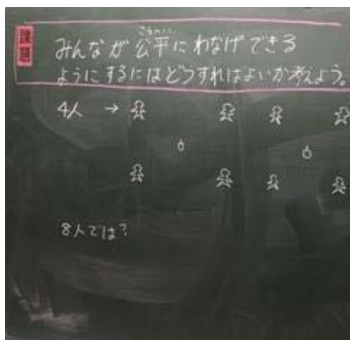 課題
こうへい
みんなが公平にわなげできる
ようにするにはどうすればよいか考えよう。
4人 →
8人では?